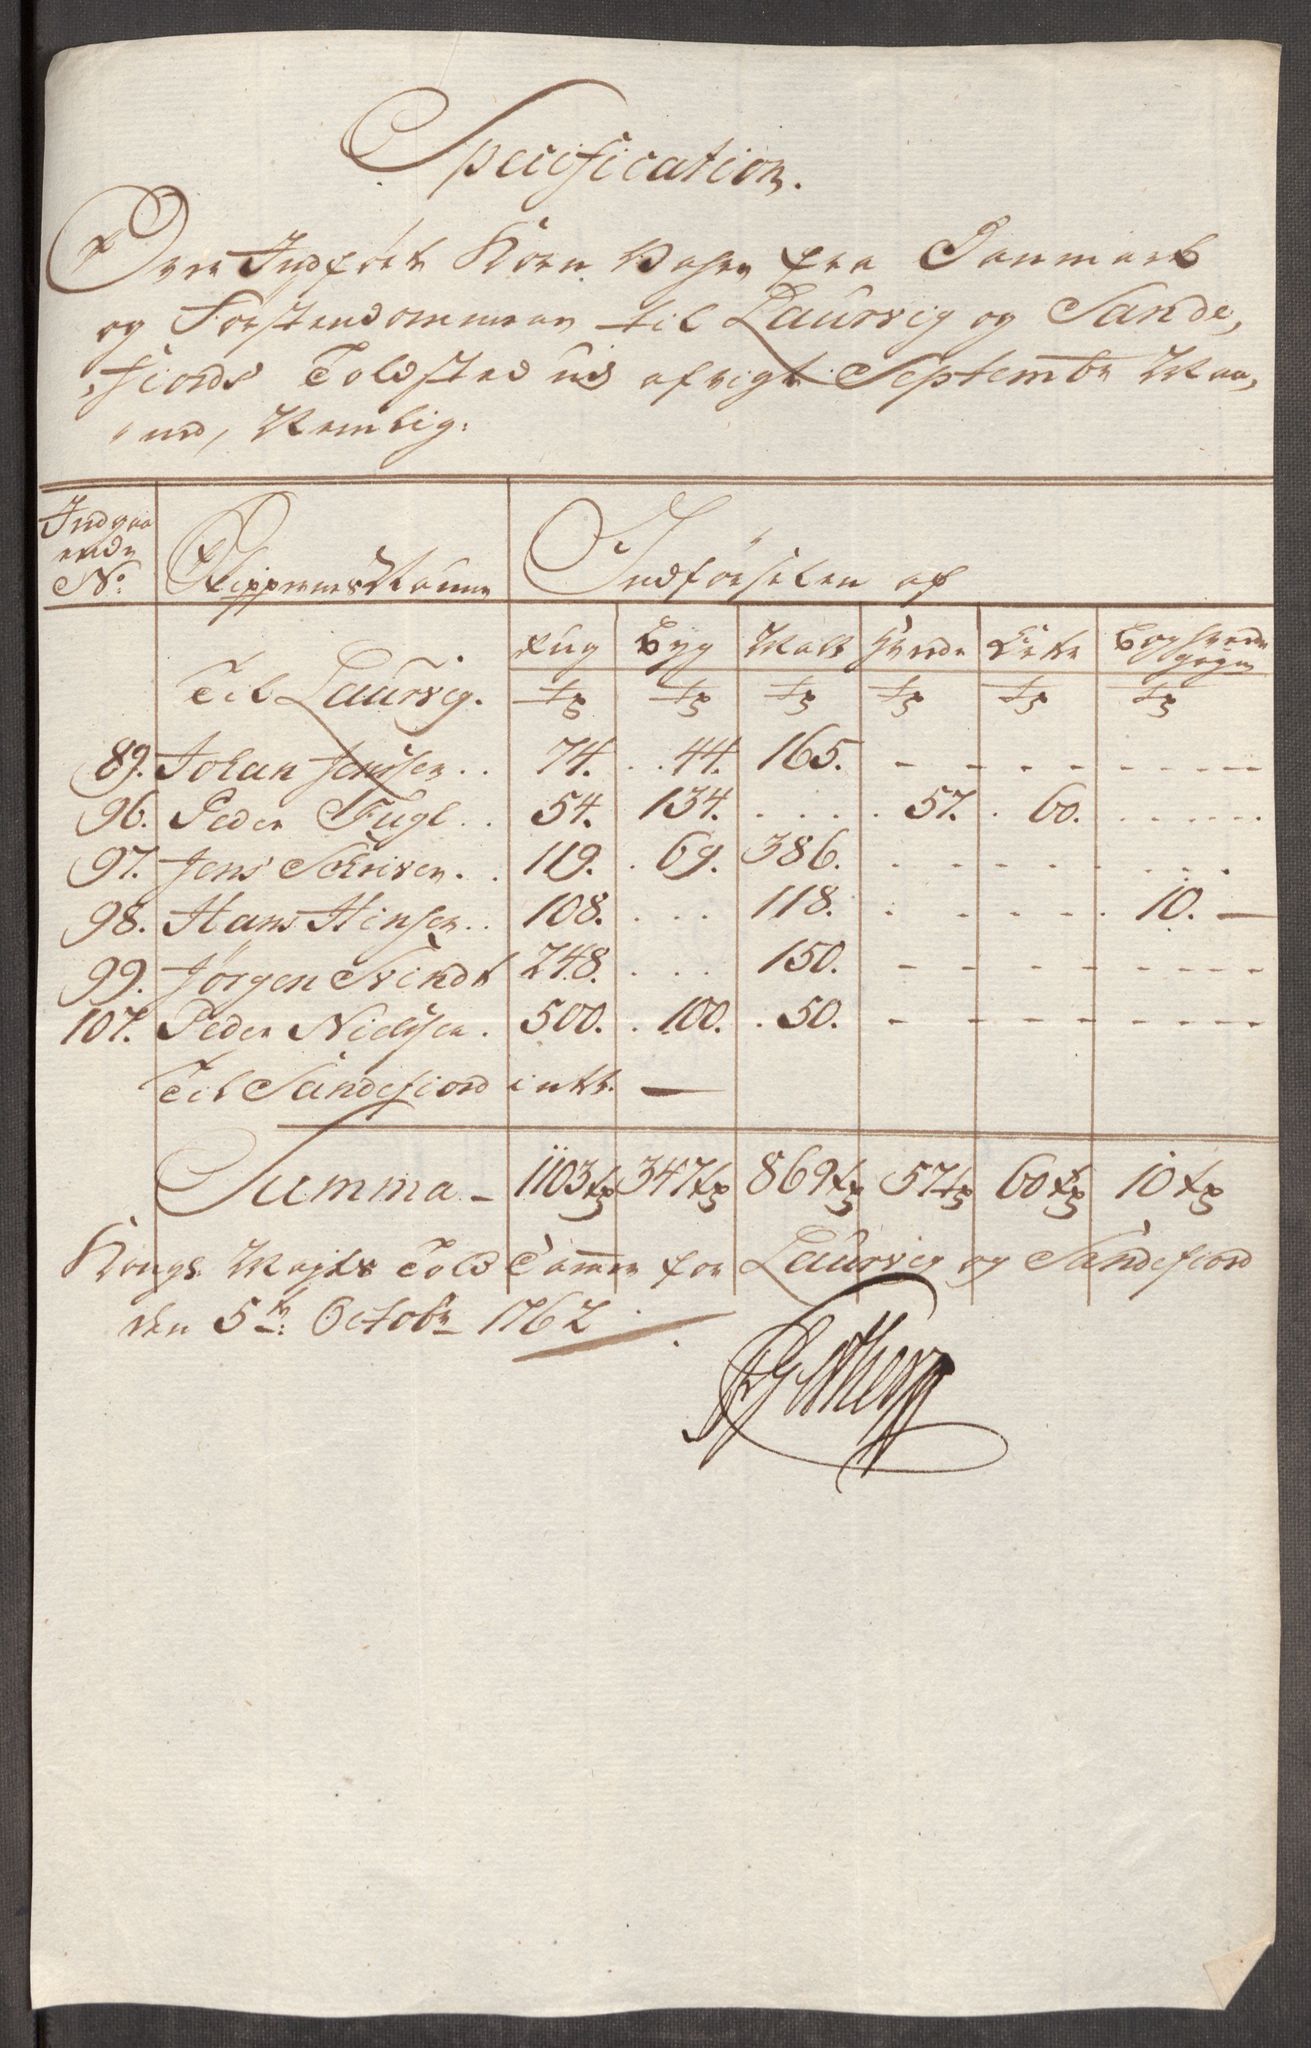 Specification.
Over Indført Korn Vahre fra Danmark
og Førstendommene til Laurvig og Sande,
,fiords Toldsted udi afvigte September Maa,
,ned, Nemlig:
Indgaa
ende
No:
Skippernes Nafne
Indførselen af
Rug Byg Malt Hvede Erter Boghvede
gryn
Til Laurvig. tr tr tr tr tr tr
89. Johan Jensen .. 74. .. 44. 165. - - - - - - - - -
96. Peder Fugl .. 54. 134. .... 57. . 60. ......
97. Jens . . 119. . 69. 386. - - - - - . . .
98. Hans Hinsen .. 108. ... 118. . - - - - . 10. —
99. Jørgen Svindt 248. ... 150. - - - - - - - - -
107. Peder Nielsen . 500. . 100. . 50. - - - - - - - - -
Til Sandefiord intet. —
Summa - 1103 tr 347 tr 869 tr 57 tr 60 tr 10 tr
Kongl. Mayts Told Cammer for Laurvig og Sandefiord
den 5te: Octobr 1762